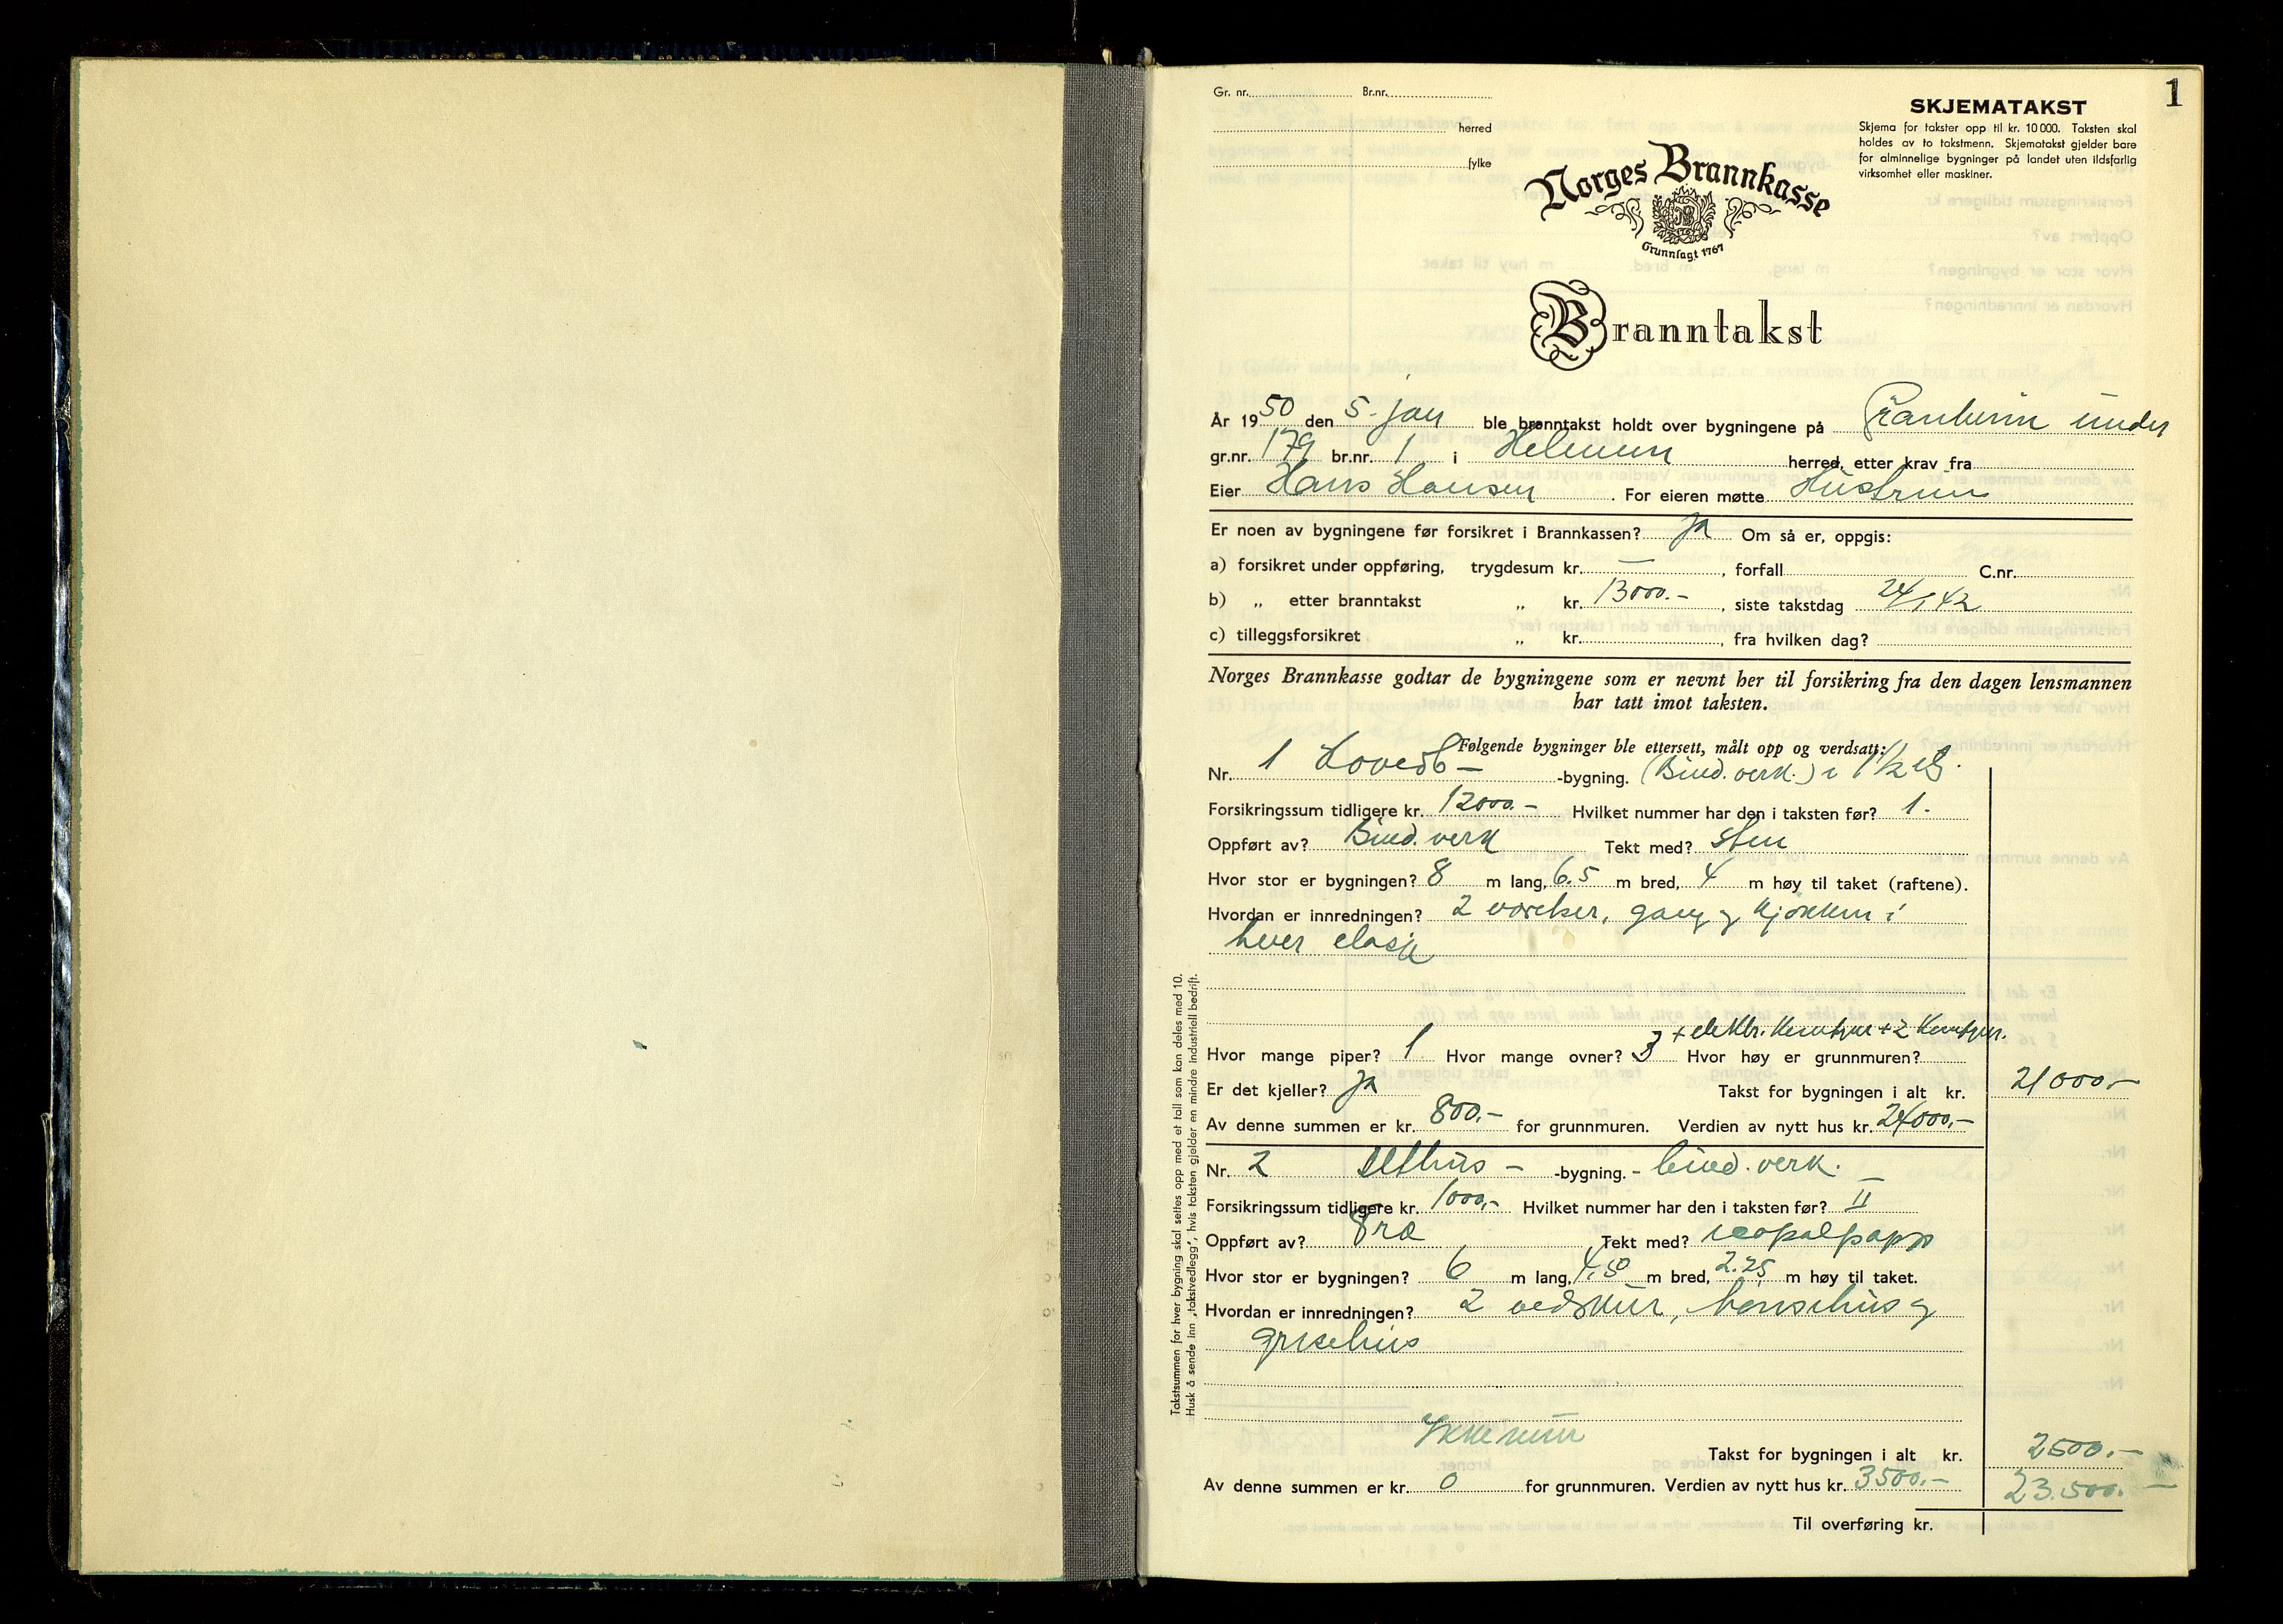 1
Gr. nr. Br.nr.
herred
fylke
SKJEMATAKST
Skjema for takster opp til kr. 10 000. Taksten skal
holdes av to takstmenn. Skjematakst gjelder bare
for alminnelige bygninger på landet uten ildsfarlig
virksomhet eller maskiner.
Norges Brannkasse
Grunnlagt 1767
Branntakst
År 1950 den 5. jan ble branntakst holdt over bygningene på Granheim under
gr.nr. 179 br.nr. 1 i herred, etter krav fra
Eier Hans Hansen. For eieren møtte Hustrun
Er noen av bygningene før forsikret i Brannkassen? ja Om så er, oppgis:
a) forsikret under oppføring, trygdesum kr. — , forfall C.nr.
b) „ etter branntakst „ kr. 13000.- , siste takstdag 24/1 42
c) tilleggsforsikret „ kr. , fra hvilken dag?
Norges Brannkasse godtar de bygningene som er nevnt her til forsikring fra den dagen lensmannen
har tatt imot taksten.
Følgende bygninger ble ettersett, målt opp og verdsatt:
Nr. 1 Hovedb- -bygning. (Bind.verk.) i 1 1/2 etg.
Forsikringssum tidligere kr. 12000.- Hvilket nummer har den i taksten før? 1.
Oppført av? Bind.verk Tekt med? Sten
Hvor stor er bygningen? 8 m lang, 6.5 m bred, 4 m høy til taket (raftene).
Hvordan er innredningen? 2 værelser, gang og kjøkken i
hver etasje
+ elektr. komfyr + 2 komfyrer.
Hvor mange piper? 1 Hvor mange ovner? 3 Hvor høy er grunnmuren?
Er det kjeller? ja Takst for bygningen i alt kr. 21000,-
Av denne summen er kr. 800,- for grunnmuren. Verdien av nytt hus kr. 24000,-
Nr. 2 Uthus - -bygning. - bind.verk.
Forsikringssum tidligere kr. 1000,- Hvilket nummer har den i taksten før? II
Oppført av? Tre Tekt med? icopalpapp
Hvor stor er bygningen? 6 m lang, 4,50 m bred, 2.25 m høy til taket.
Hvordan er innredningen? 2 vedskur, hønsehus og
grisehus
Ikke mur
Takst for bygningen i alt kr. 2500.-
Av denne summen er kr. 0 for grunnmuren. Verdien av nytt hus kr. 3500.- 23.500.-
Til overføring kr.
Takstsummen for hver bygning skal settes opp med et tall som kan deles med 10.
Husk å sende inn „takstvedlegg", hvis taksten gjelder en mindre industriell bedrift.